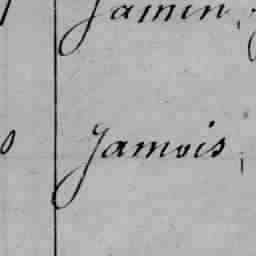 Jamin,
Jamois,